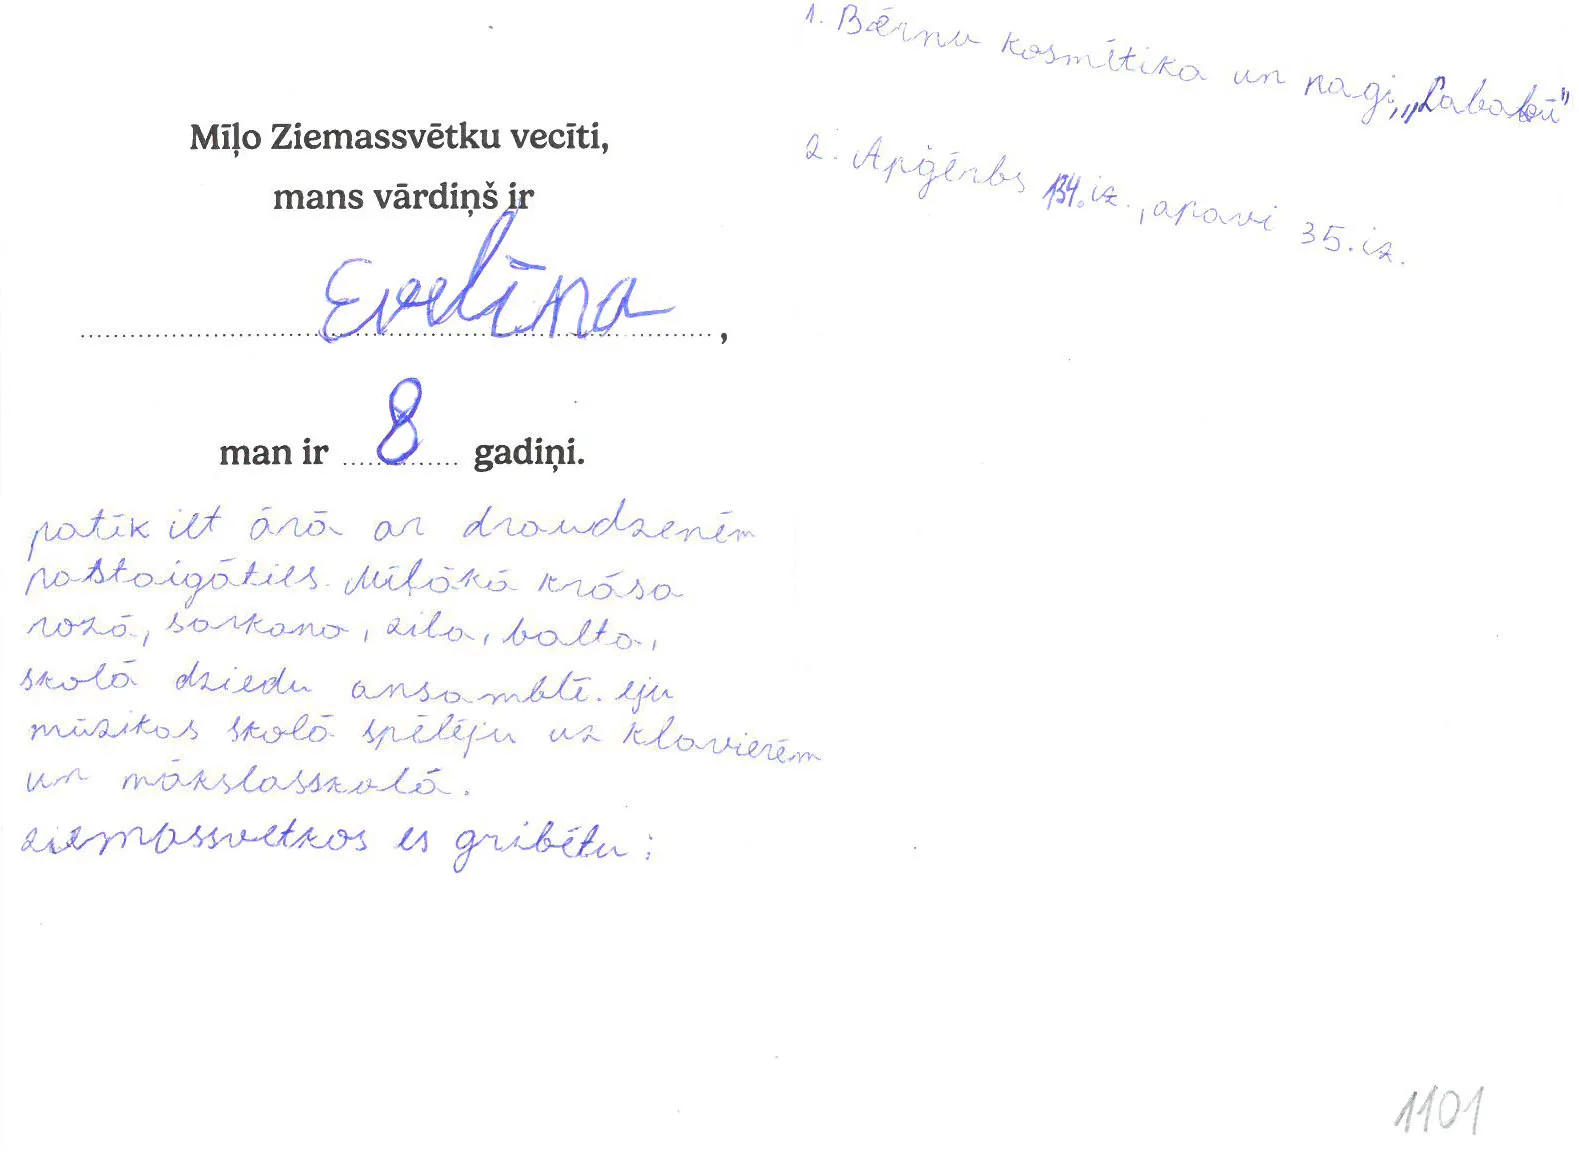 Mīļo Ziemassvētku vecīti,
mans vārdiņš ir
Evelīna,
man ir 8 gadiņi.
patīk iet ārā ar draudzenēm
pastaigāties. Mīļākā krāsa
rozā, sarkana, zila, balta,
skolā dziedu ansamblī. eju
mūzikas skolā spēlēju uz klavierēm
un mākslasskolā.
ziemassvetkos es gribētu:
1. Bērnu kosmētika un nagi, „Labubū”
2. Apģērbs 134. iz., apavi 35. iz.
1101